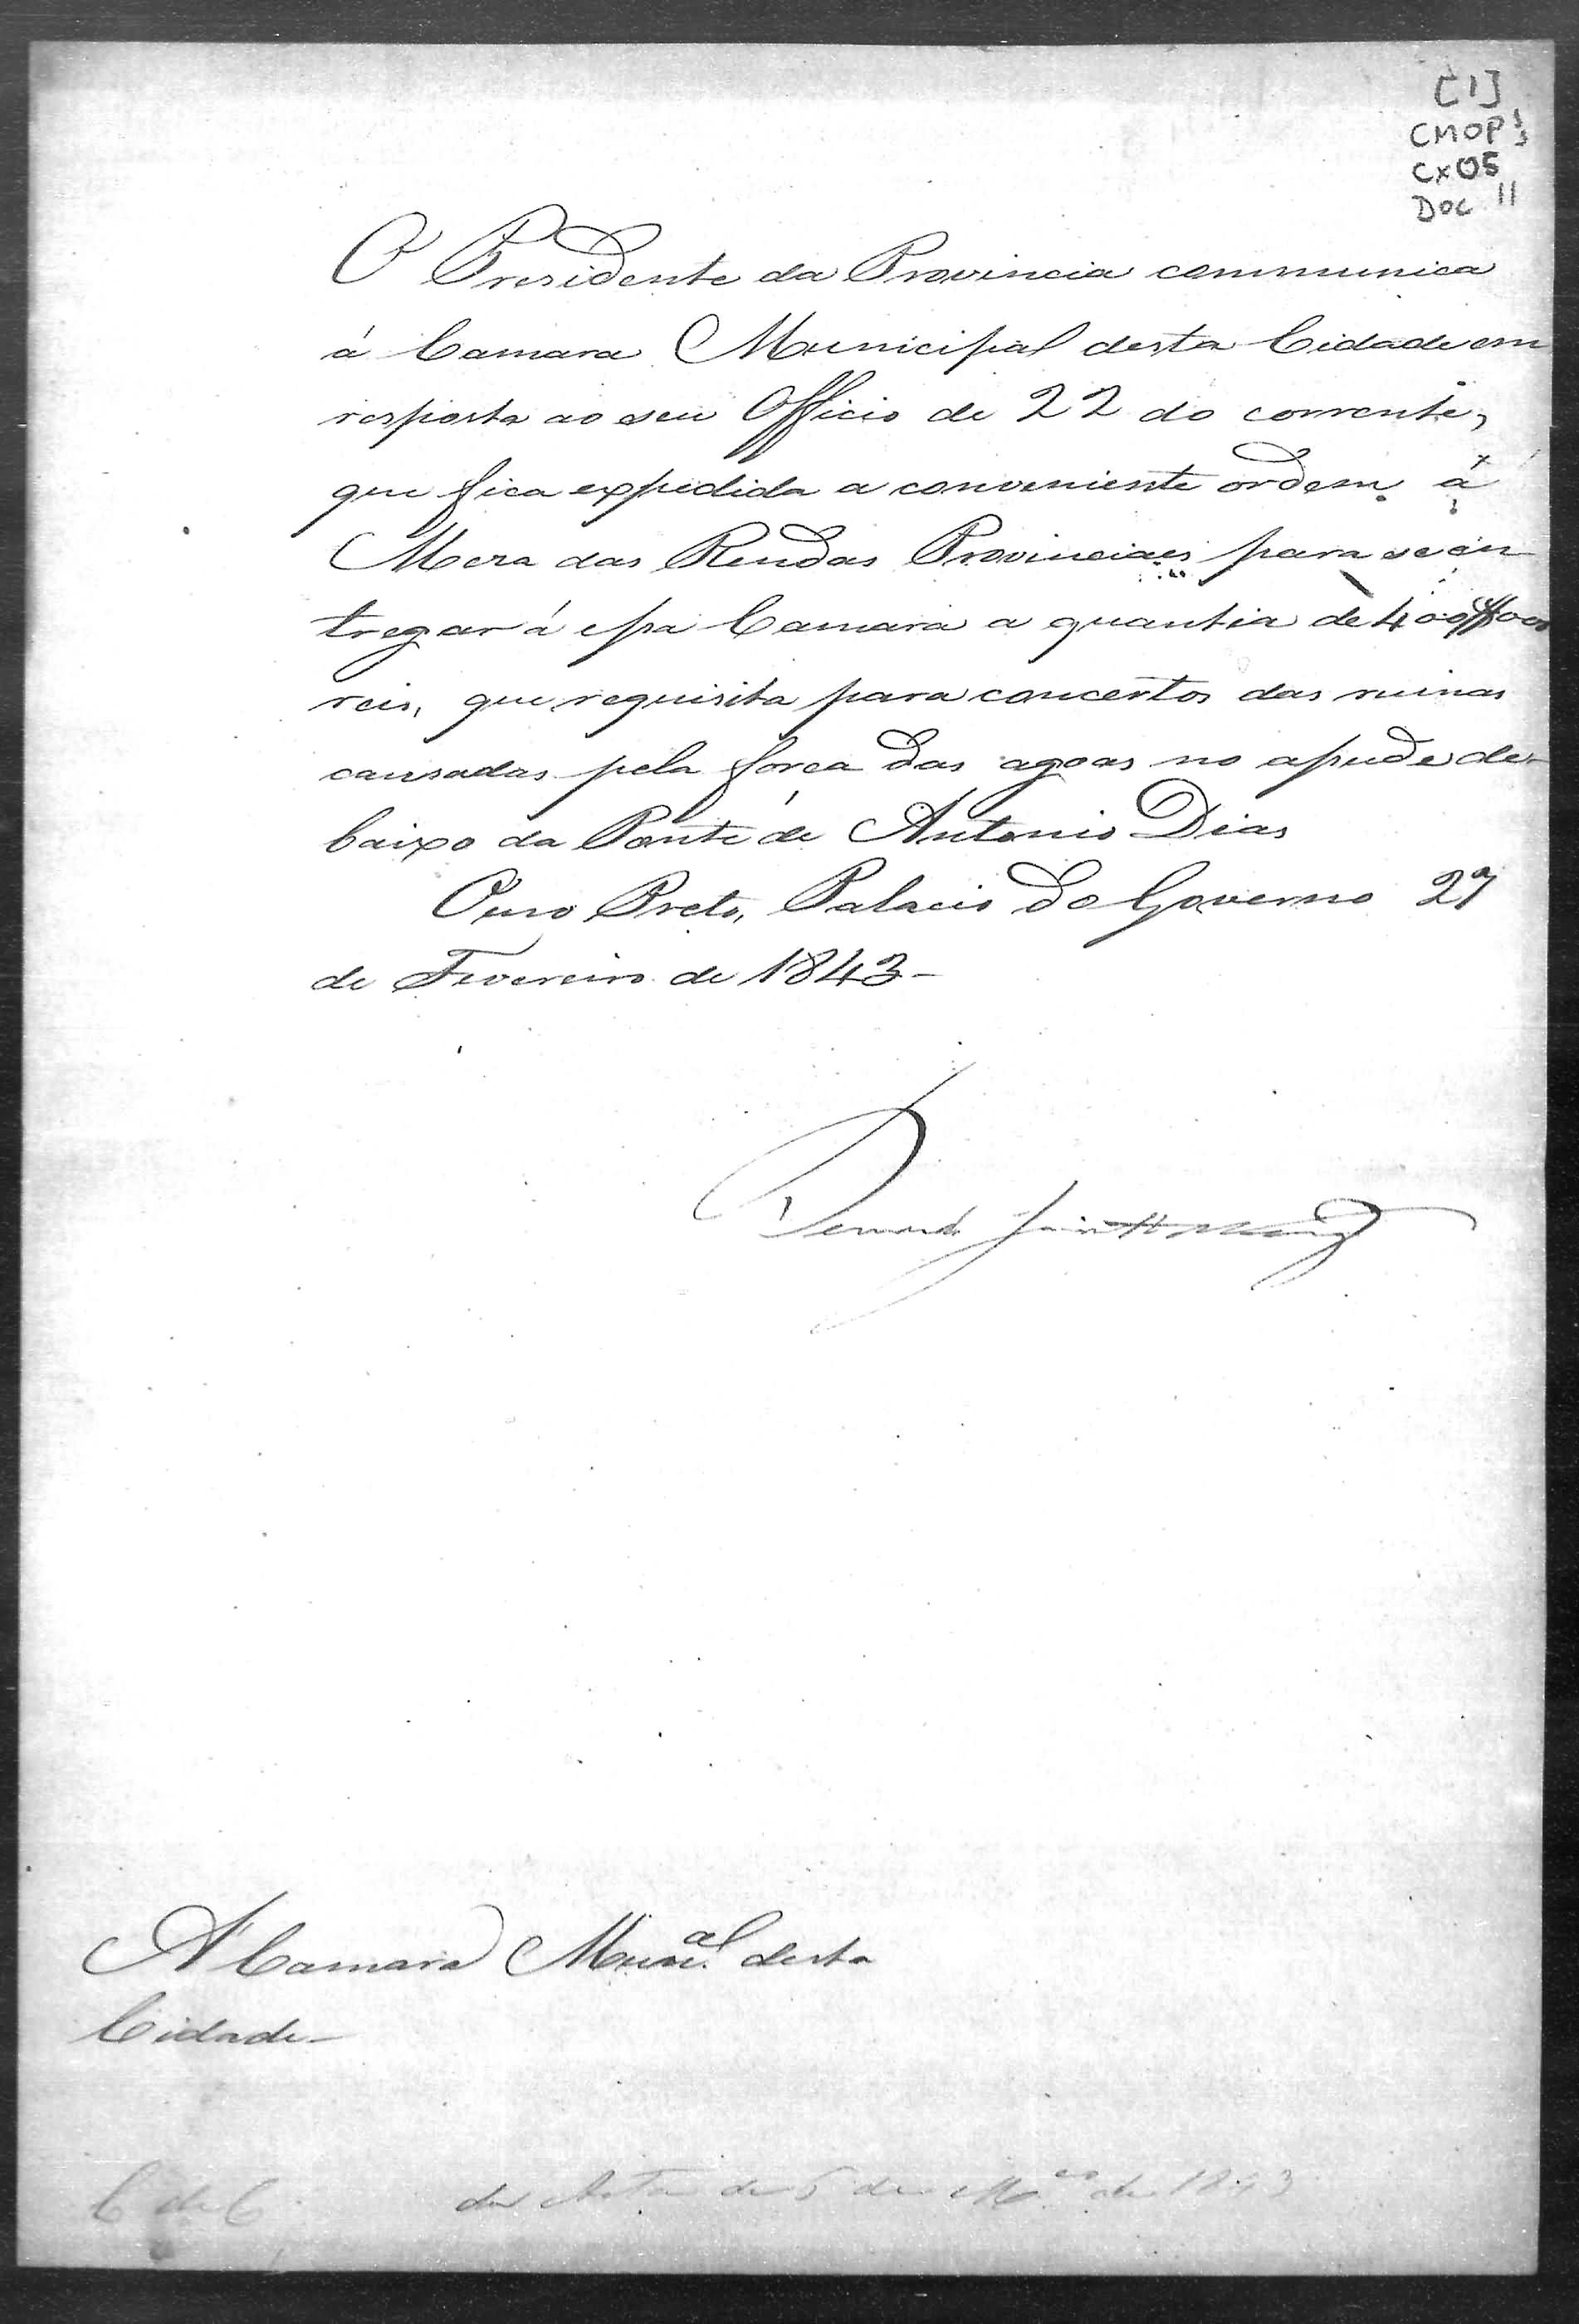 [1]
CMOP
Cx05
Doc 11
O Presidente da Provincia communica
á Camara Municipal desta Cidade em
resposta ao seu Officio de 22 do corrente,
que fica expedida a conveniente ordem á
Meza das Rendas Provinciaes para se en
tregar á essa Camara a quantia de 400$000
reis, que requisita para concertos das ruinas
causadas pela força das agoas no assude de-
baixo da Ponte de Antonio Dias
Ouro Preto, Palacio do Governo 27
de Fevereiro de 1843-
Bernardo
A' Camara Mun.al desta
Cidade-
da Acta de de M.ço de 1843